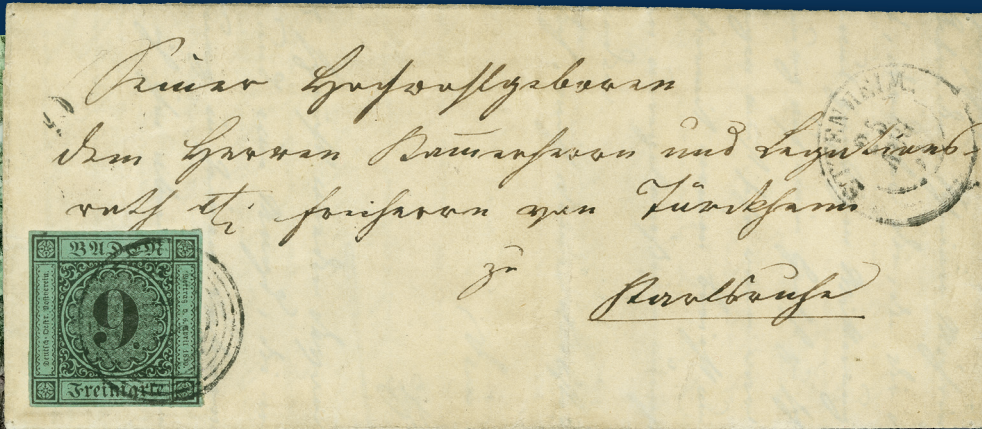 Seiner Hochwohlgeboren
dem Herren Kammerherrn und Legations-
rath Freiherrn von Türckheim
zu
Karlsruhe
ETTENHEIM
BADEN
9.
Freimarke